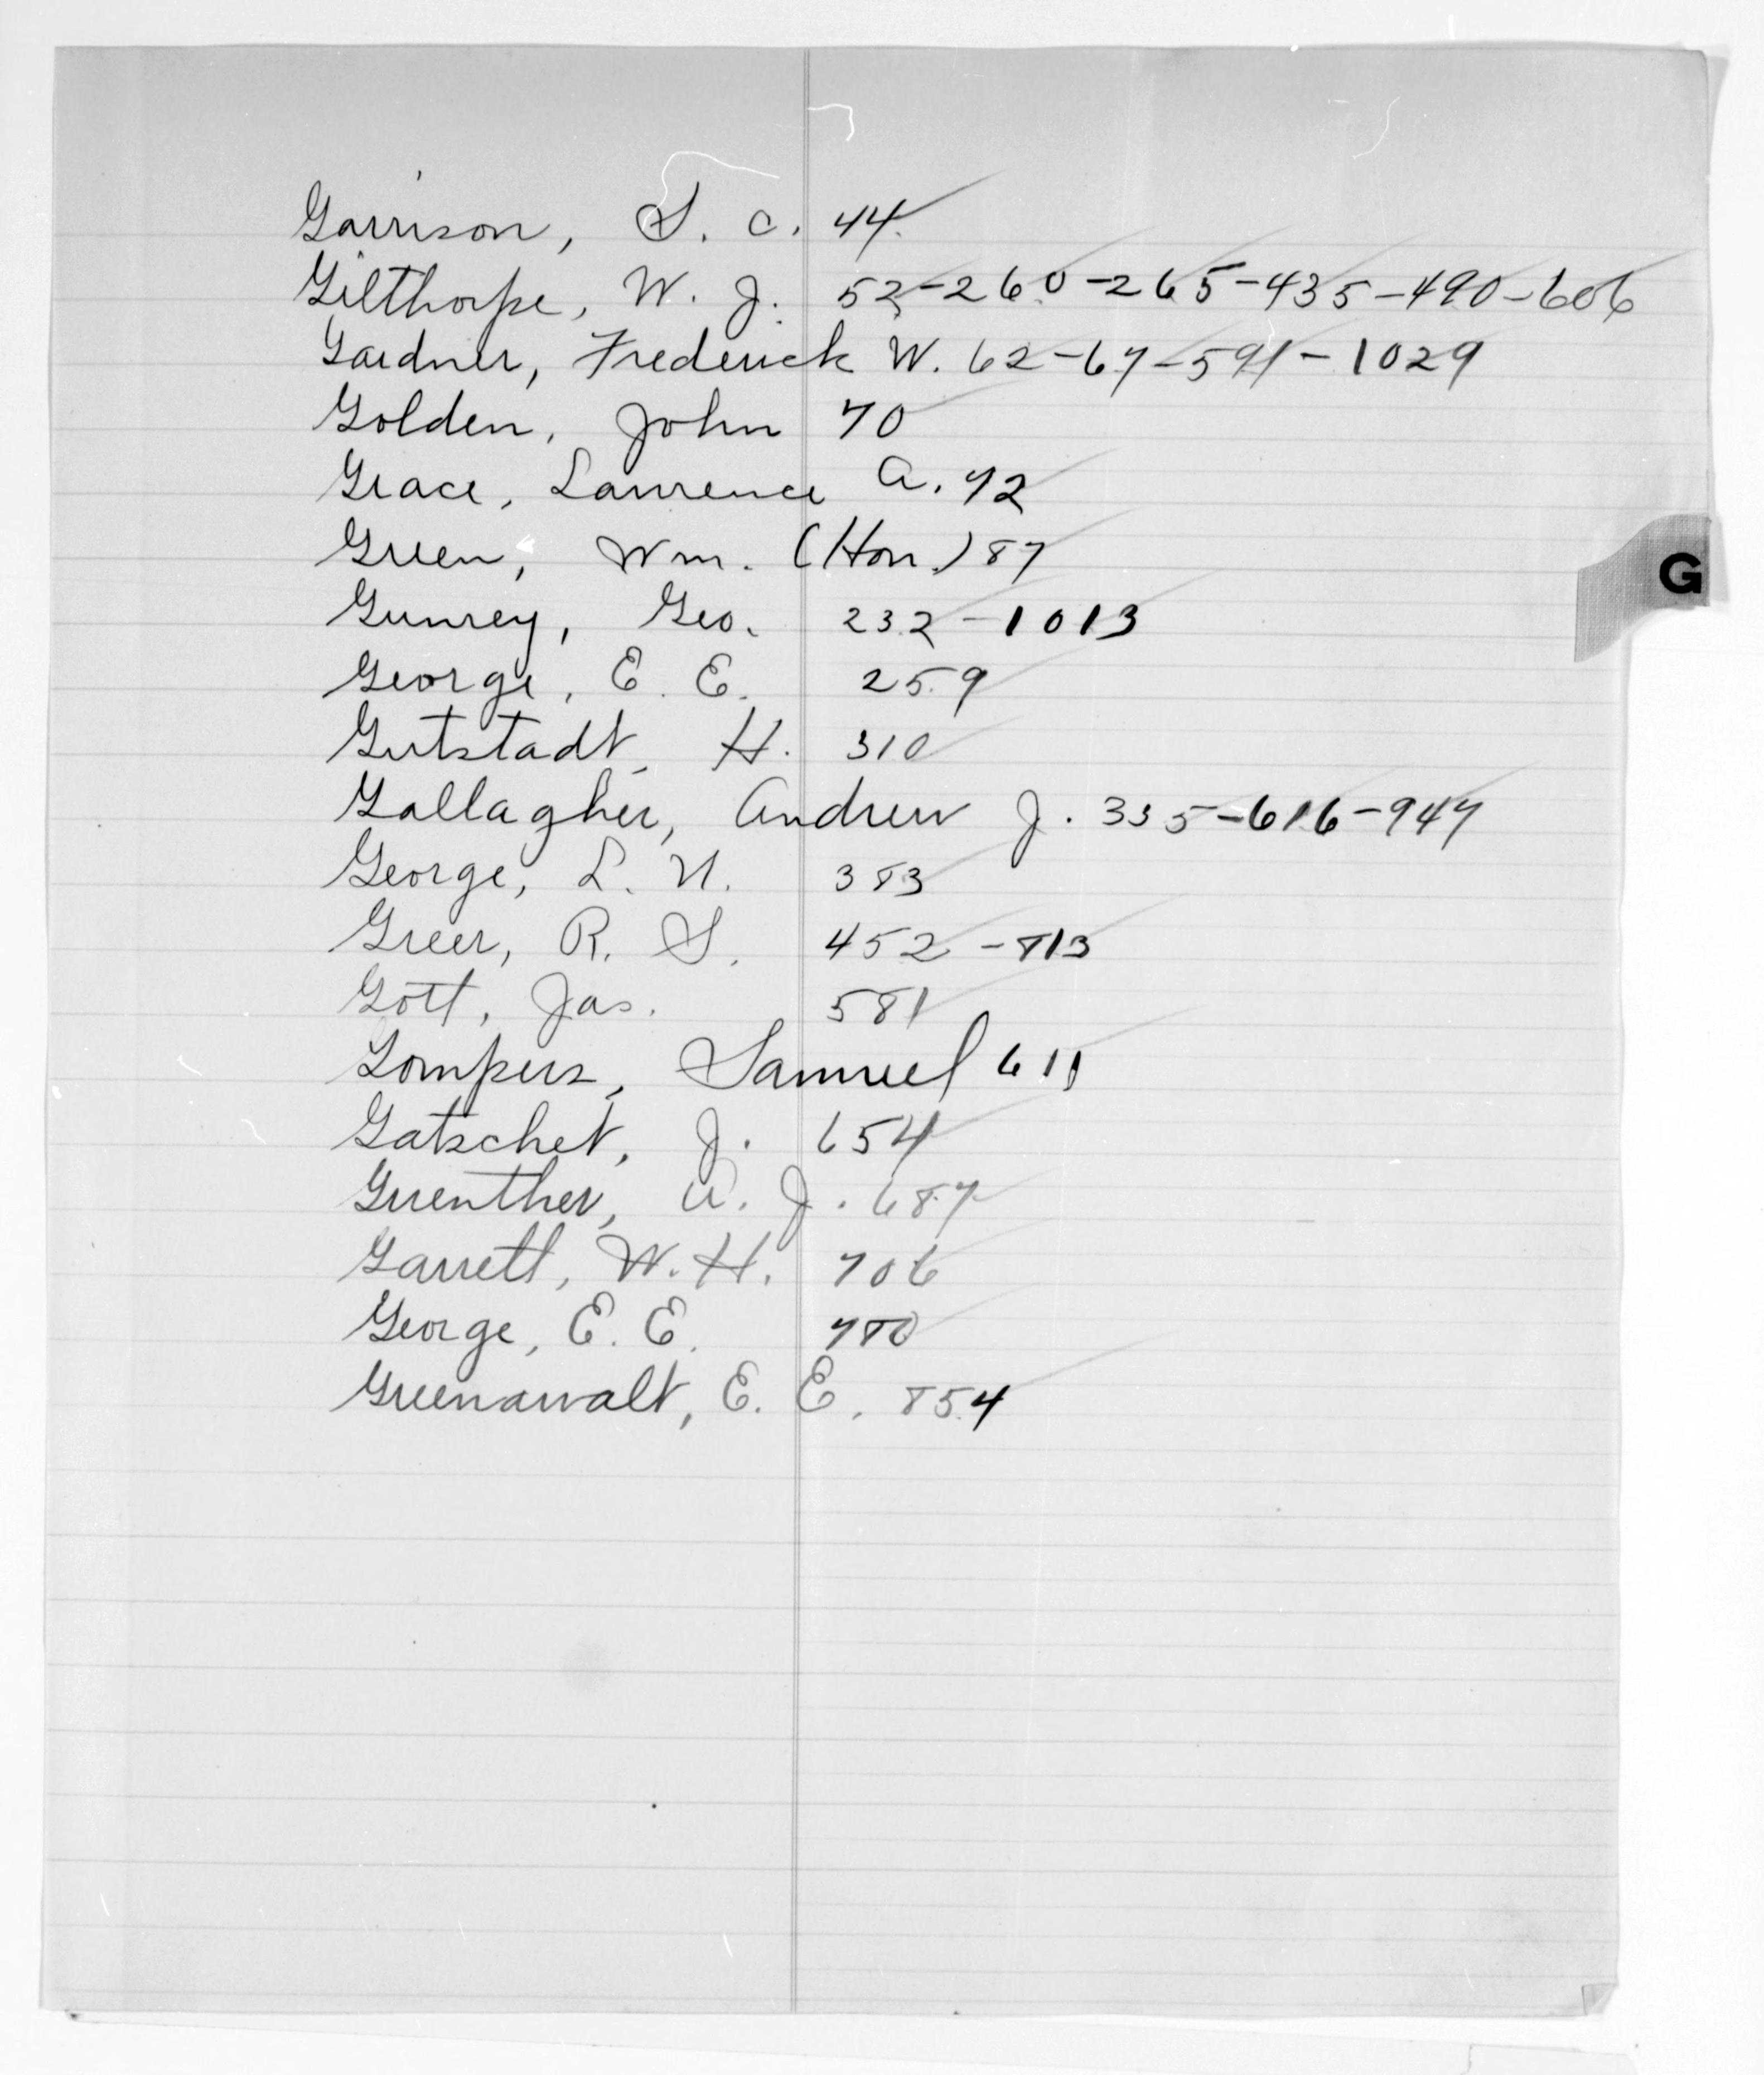 Garrison, S. C. 44
Gilthorpe, W. J. 52-260-265-435-490-606
Gardner, Frederick W. 62-67-591-1029
Golden, John 70
Grace, Lawrence A. 72
Green, Wm. (Hon.) 87
G
Gunrey, Geo. 232-1013
George, E. E. 259
Gutstadt, H. 310
Gallagher, Andrew J. 335-616-947
George, L. N. 383
Greer, R. S. 452-813
Gott, Jas. 581
Gompers, Samuel 611
Gatschet, J. 654
Guenther, A. J. 687
Garrett, W. H. 706
George, E. E. 780
Greenawalt, E. E. 854